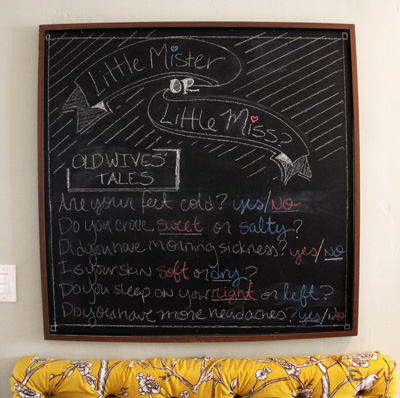 Little Mister
OR
Little Miss?
OLD WIVES'
TALES
Are your feet cold? yes/NO
Do you crave sweet or salty?
Did you have morning sickness? yes/NO
Is your skin soft or dry?
Do you sleep on your right or left?
Do you have more headaches? yes/NO